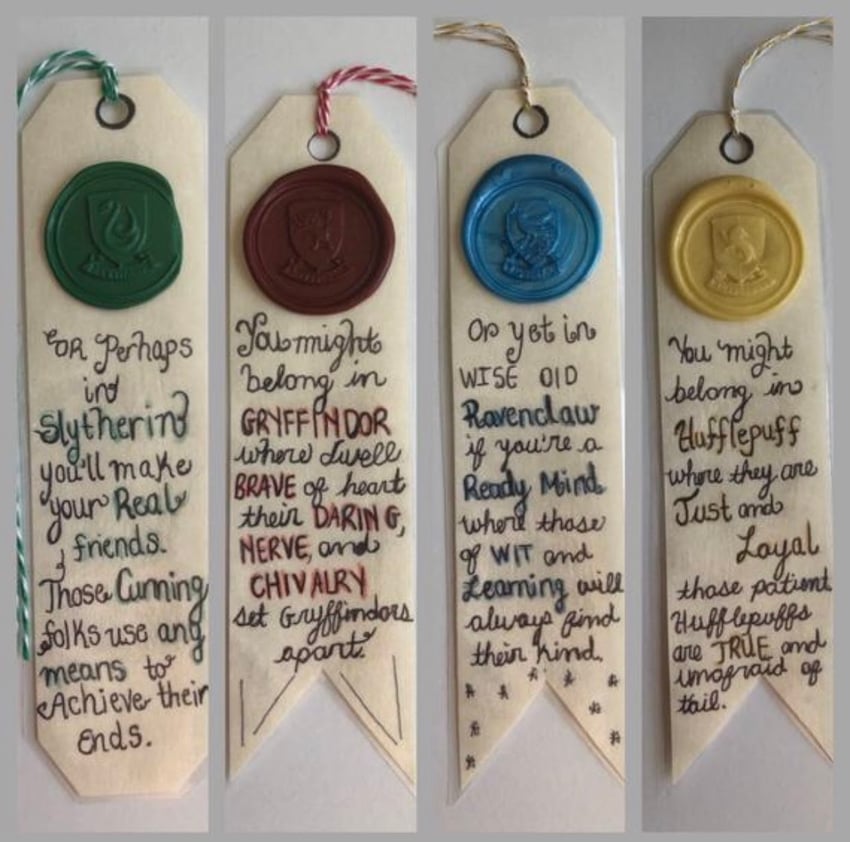 OR Perhaps
in
Slytherin
you'll make
your Real
friends.
Those Cunning
folks use any
means to
Achieve their
Ends.
You might
belong in
GRYFFINDOR
where dwell
BRAVE of heart
their DARING,
NERVE, and
CHIVALRY
set Gryffindors
apart.
Or yet in
WISE OLD
Ravenclaw
if you're a
Ready Mind
where those
of WIT and
Learning will
always find
their kind.
You might
belong in
Hufflepuff
where they are
Just and
Loyal
those patient
Hufflepuffs
are TRUE and
unafraid of
tail.